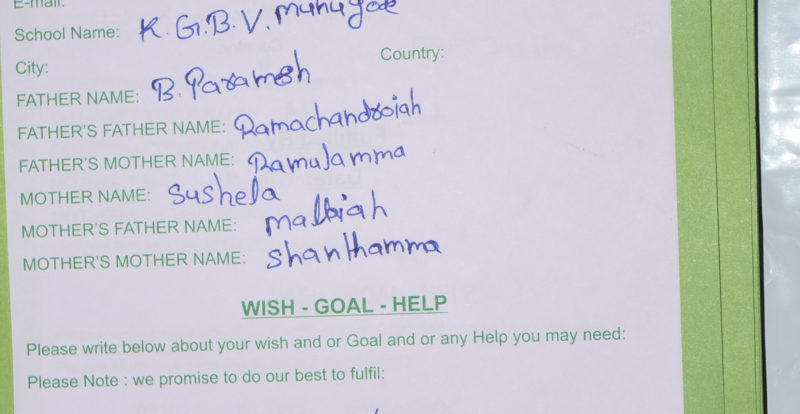 E-mail:
School Name: K.G.B.V. Munugode
City: Country:
FATHER NAME: B. Paramesh
FATHER'S FATHER NAME: Ramachandroiah
FATHER'S MOTHER NAME: Ramulamma
MOTHER NAME: Sushela
MOTHER'S FATHER NAME:
MOTHER'S MOTHER NAME: Shanthamma
WISH - GOAL - HELP
Please write below about your wish and or Goal and or any Help you may need:
Please Note : we promise to do our best to fulfil: